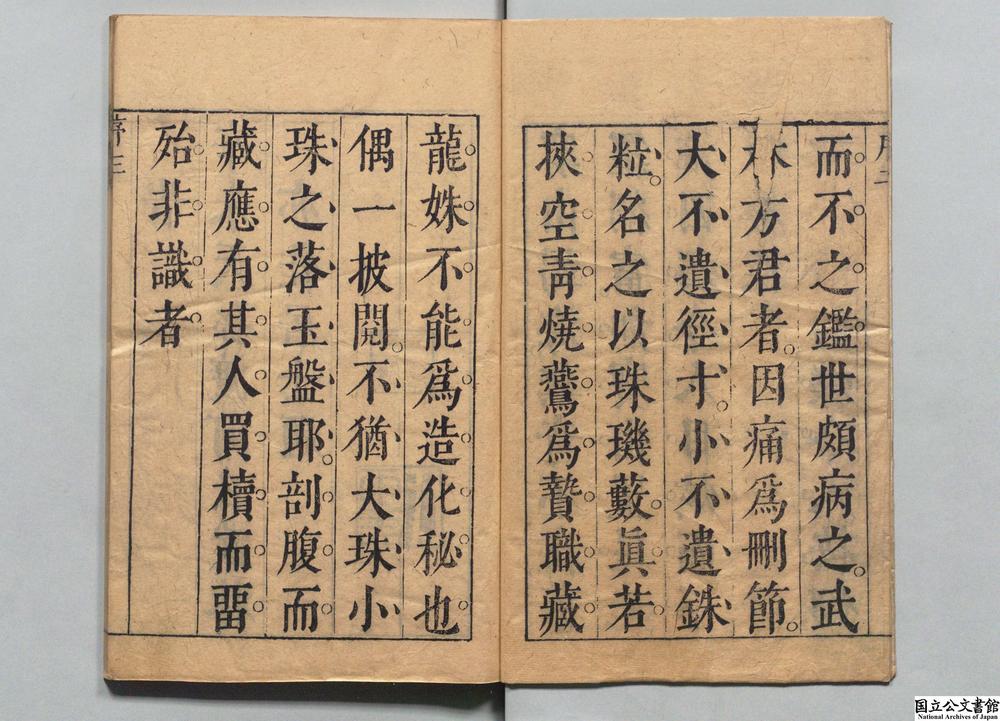 而不之鑑世頗病之武
林方君者因痛爲刪節
大不遺徑寸小不遺銖
粒名之以珠璣藪眞若
挾空靑燒鸞爲贄職藏
龍姝不能爲造化秘也
偶一披閱不猶大珠小
珠之落玉盤耶剖腹而
藏應有其人買櫝而畱
殆非識者
序三
国立公文書館
National Archives of Japan